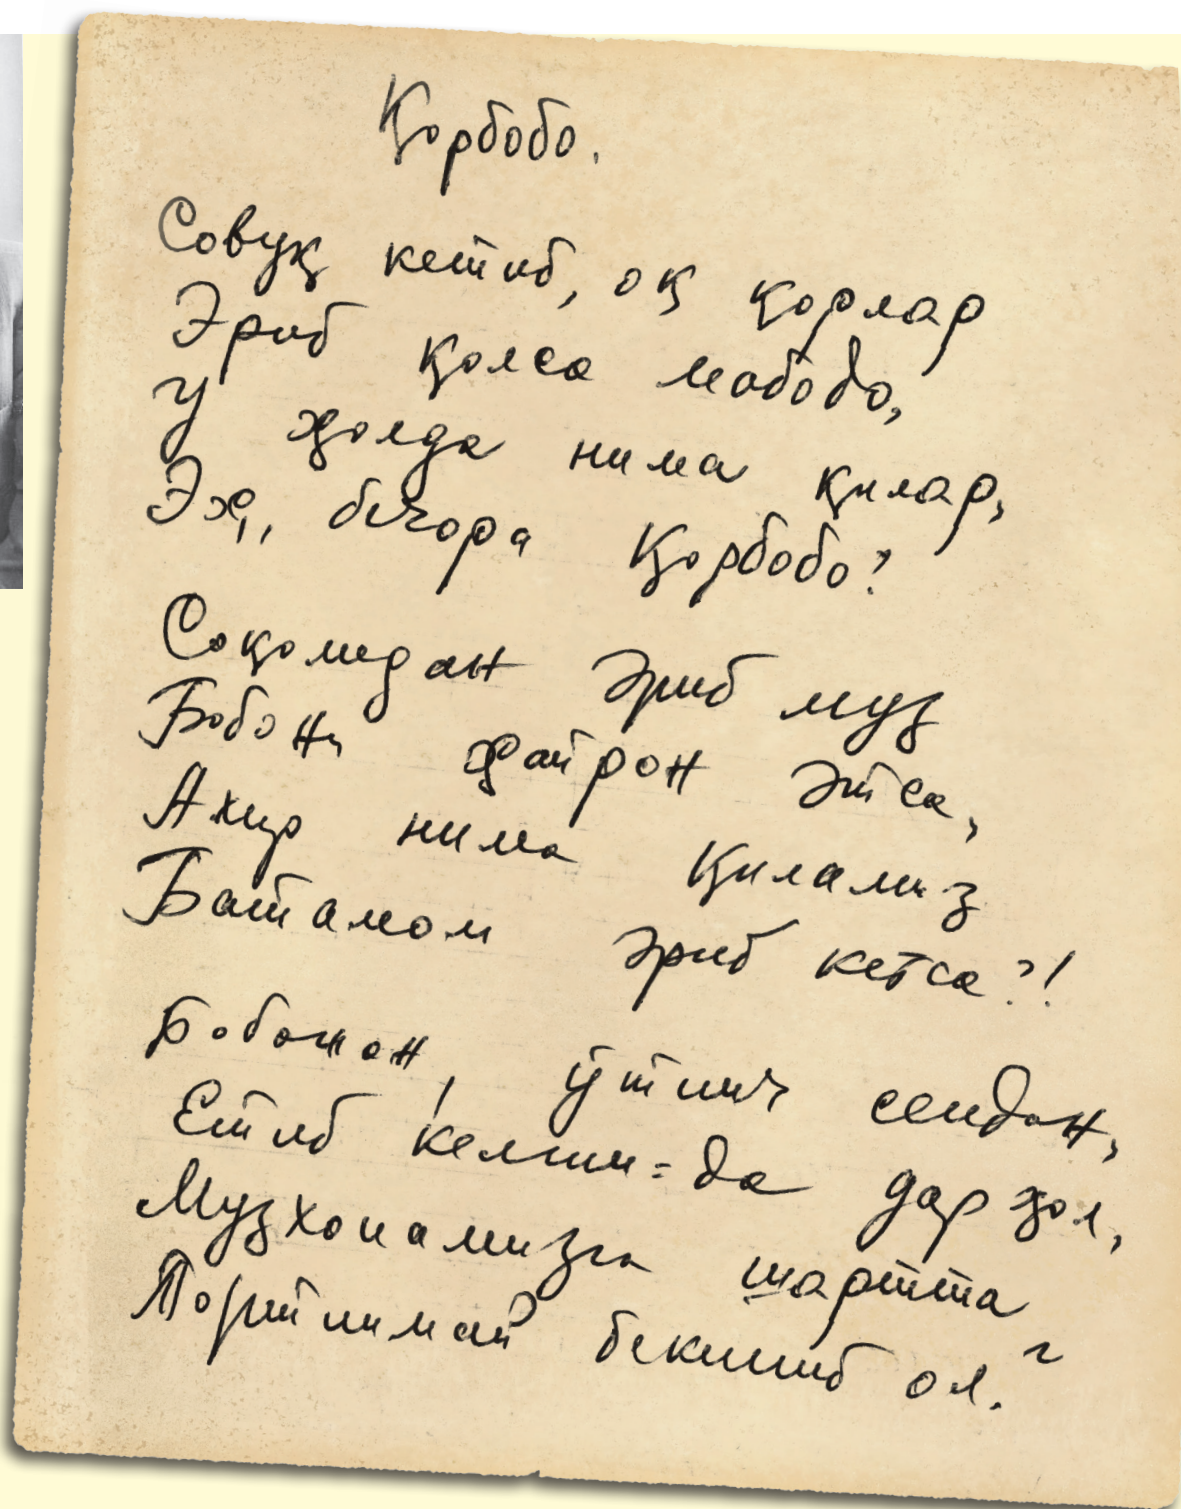 Қорбобо.
Совуқ кетиб, оқ қорлар
Эриб қолса мабодо,
У ҳолда нима қилар,
Эҳ, бечора Қорбобо?
Соқолидан эриб муз
Бобони ҳайрон этса,
Ахир нима қиламиз
Батамом эриб кетса?!
Бобожон, ўтинч сендан,
Етиб келгин-да дарҳол,
Музхонамизга шартта
Тортинмай бекиниб ол.